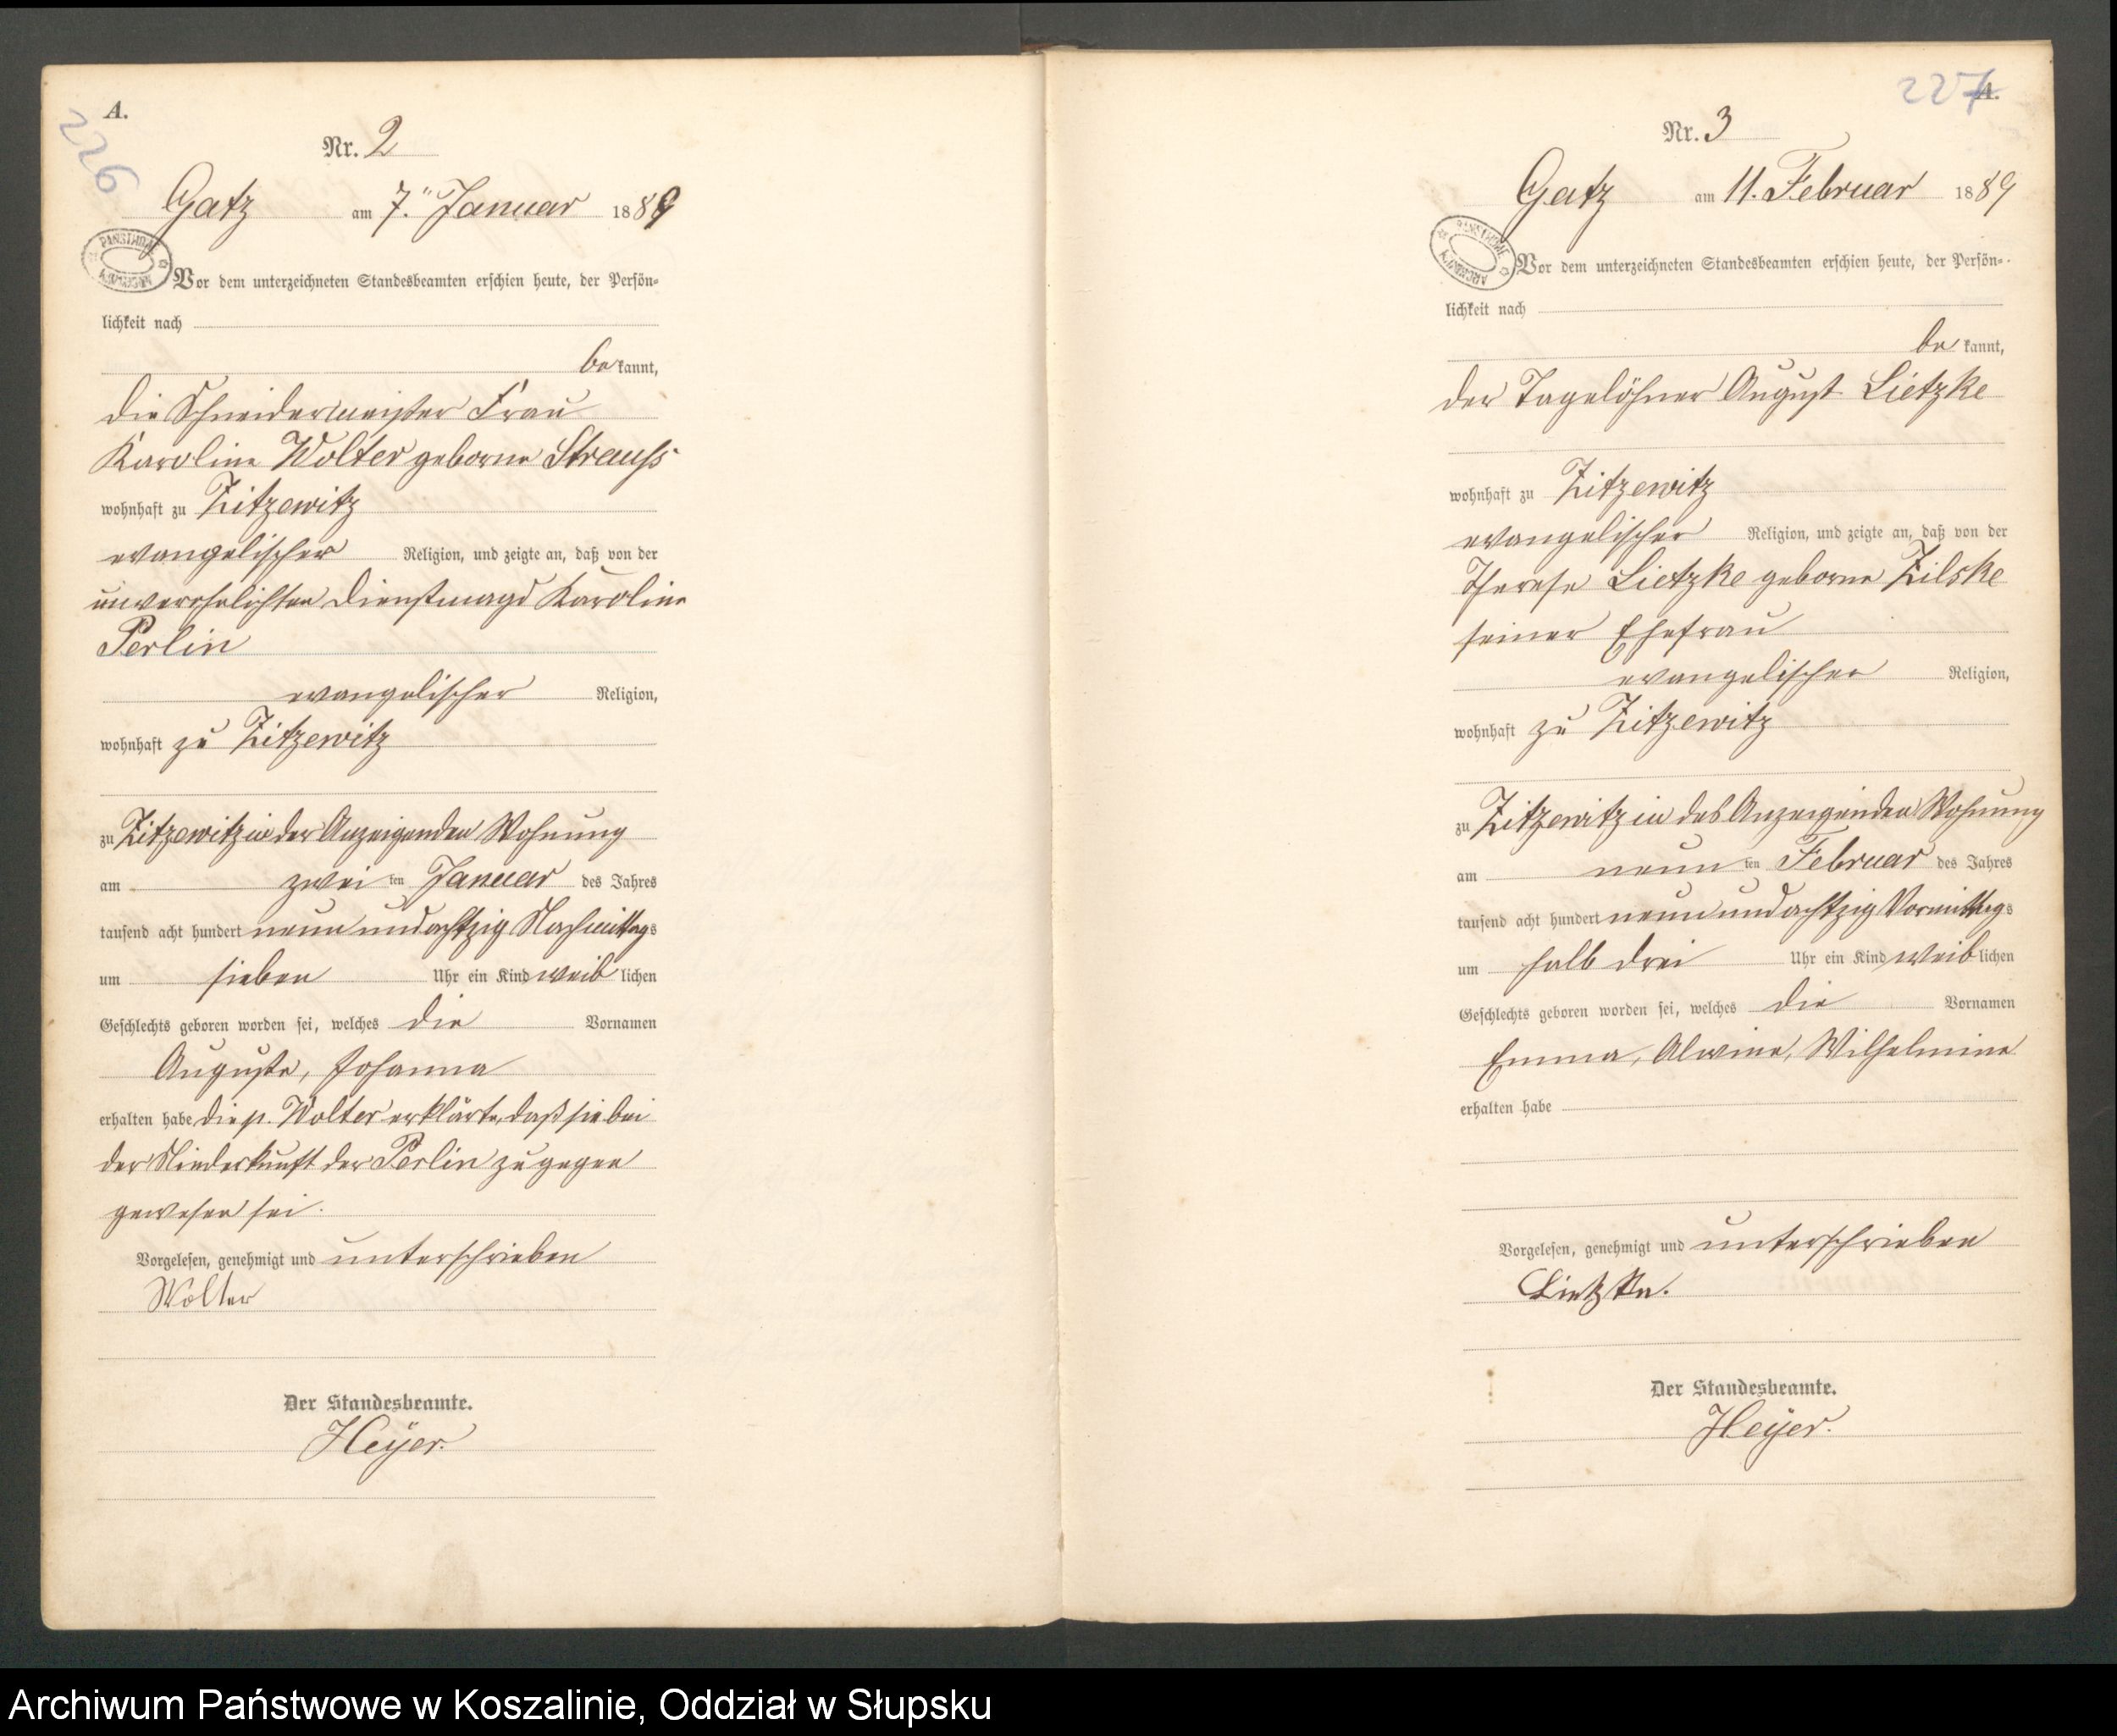 A.
226
Nr. 2
Gatz am 7.ten Januar 1889
Vor dem unterzeichneten Standesbeamten erschien heute, der Persön-
lichkeit nach
be kannt,
die Schneidermeister Frau
Karoline Wolter geborne Strauss
wohnhaft zu Zitzewitz
evangelischer Religion, und zeigte an, daß von der
unverehelichten Dienstmagd Karoline
Perlin
evangelischer Religion,
wohnhaft zu Zitzewitz
zu Zitzewitz in der Anzeigenden Wohnung
am zwei ten Januar des Jahres
tausend acht hundert neun und achtzig Nachmittags
um sieben Uhr ein Kind weiblichen
Geschlechts geboren worden sei, welches die Vornamen
Auguste, Johanna
erhalten habe die p. Wolter erklärte, daß sie bei
der Niederkunft der Perlin zugegen
gewesen sei.
Vorgelesen, genehmigt und unterschrieben
Wolter
Der Standesbeamte.
Heyer.
227
A.
Nr. 3
Gatz am 11. Februar 1889
Vor dem unterzeichneten Standesbeamten erschien heute, der Persön-
lichkeit nach
be kannt,
der Tagelöhner August Lietzke
wohnhaft zu Zitzewitz
evangelischer Religion, und zeigte an, daß von der
Therese Lietzke geborne Zilske
seiner Ehefrau
evangelischer Religion,
wohnhaft zu Zitzewitz
zu Zitzewitz in des Anzeigenden Wohnung
am neun ten Februar des Jahres
tausend acht hundert neun und achtzig Vormittags
um halb drei Uhr ein Kind weiblichen
Geschlechts geboren worden sei, welches die Vornamen
Emma, Alwine, Wilhelmine
erhalten habe
Vorgelesen, genehmigt und unterschrieben
Lietzke.
Der Standesbeamte.
Heyer.
Archiwum Państwowe w Koszalinie, Oddział w Słupsku